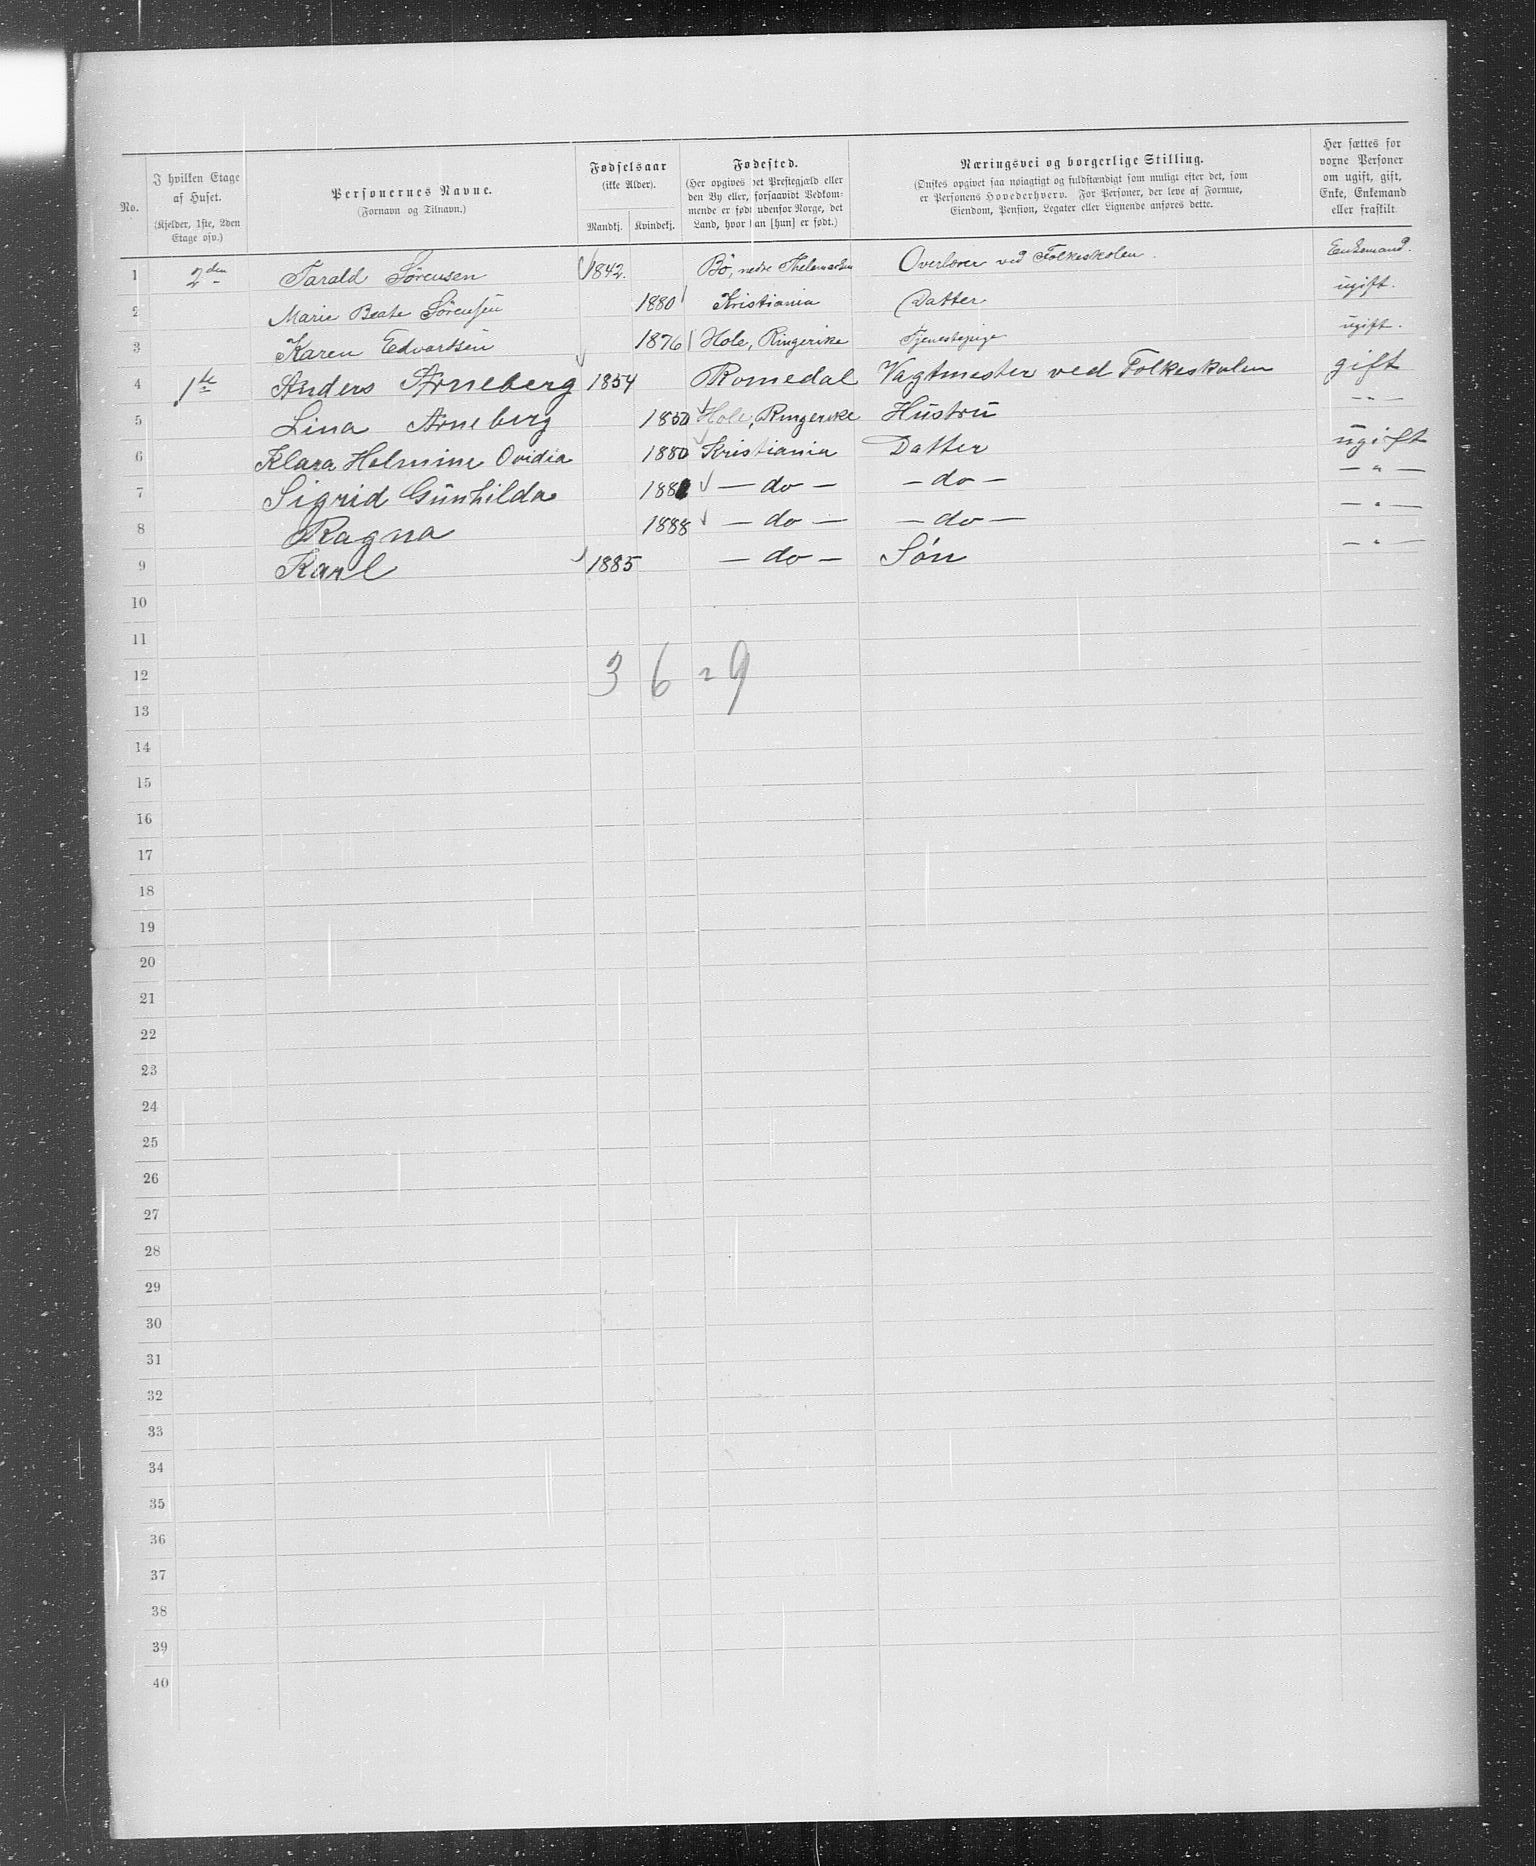 No. | I hvilken Etage af Huset. (Kjelder, 1ste, 2den Etage osv.) | Personernes Navne. (Fornavn og Tilnavn.) | Fødselsaar (ikke Alder). Mandkj. Kvindekj. | Fødested. (Her opgives det Prestegjæld eller den By eller, forsaavidt Vedkommende er født udenfor Norge, det Land, hvor han [hun] er født.) | Næringsvei og borgerlige Stilling. (Ønskes opgivet saa nøiagtigt og fuldstændigt som muligt efter det, som er Personens Hovederhverv. For Personer, der leve af Formue, Eiendom, Pension, Legater eller Lignende anføres dette. | Her sættes for voxne Personer om ugift, gift, Enke, Enkemand eller fraskilt
1 2den Tarald Sörensen 1842. Bö, nedre Thelemarken Overlærer ved Folkeskolen. Enkemand.
2 Marie Beate Sörensen 1880 Kristiania Datter ugift.
3 Karen Edvartsen 1876 Hole, Ringerike Tjenestepige ugift.
4 1ste Anders Arneberg 1854 Romedal Vagtmester ved Folkeskolen gift
5 Lina Arneberg 1850 Hole, Ringerike Hustru — " —
6 Klara Helmine Ovidia 1880 Kristiania Datter ugift
7 Sigrid Gunhilda 188 — do — — do — — " —
8 Ragna 1888 — do — — do — — " —
9 Karl 1885 — do — Sön — " —
10
11
12 3 6 = 9
13
14
15
16
17
18
19
20
21
22
23
24
25
26
27
28
29
30
31
32
33
34
35
36
37
38
39
40